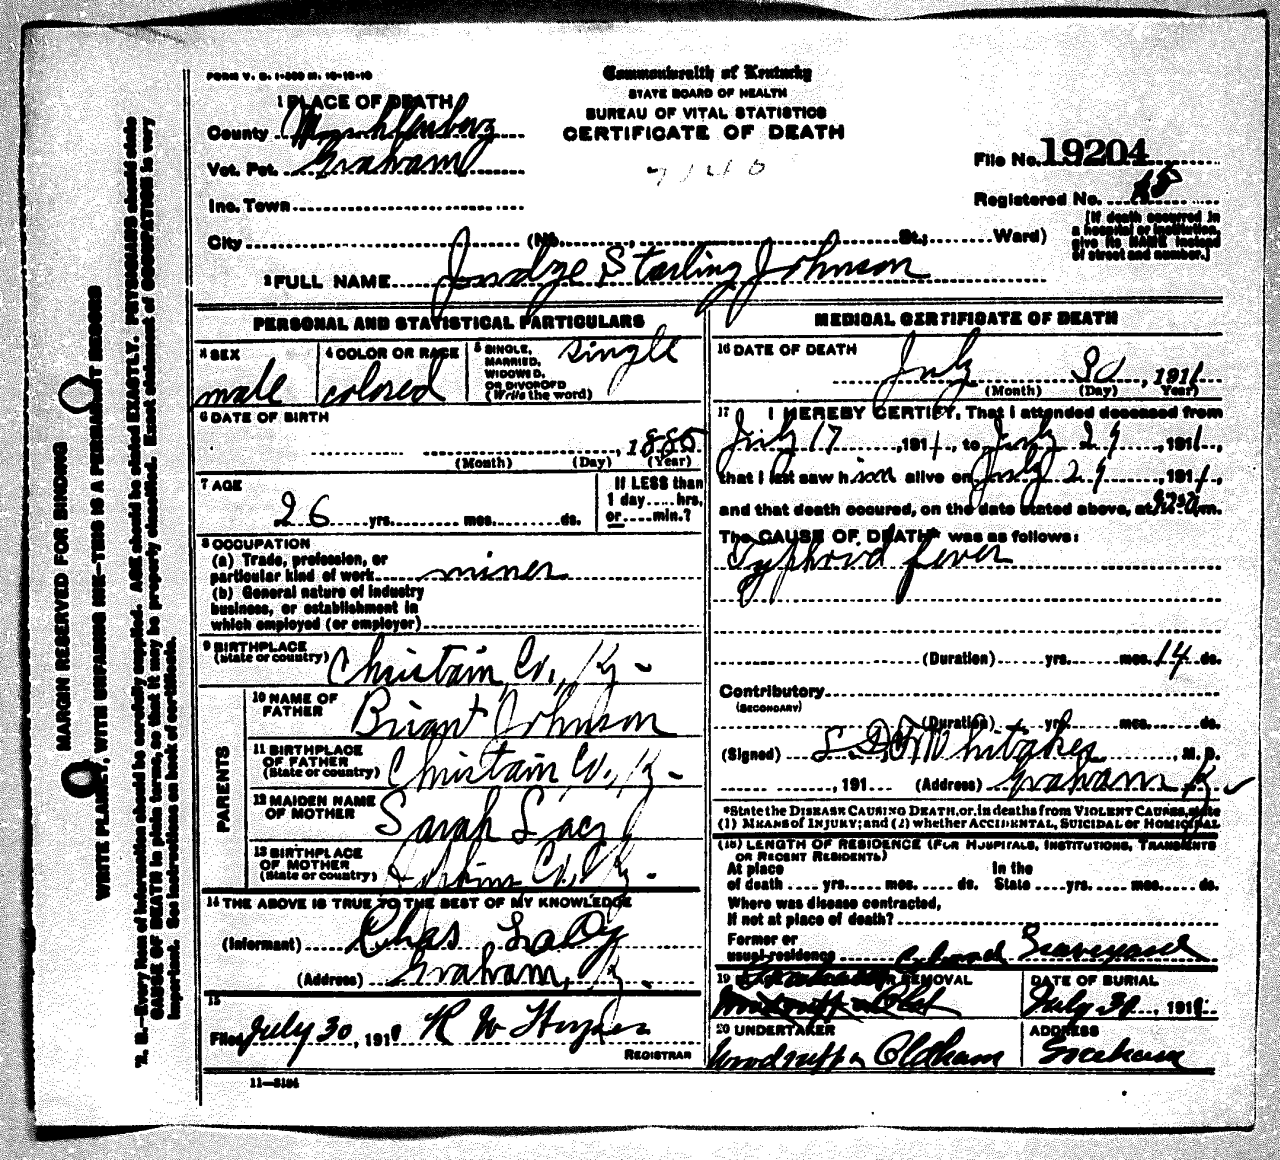 FORM V. S. 1-300 M. 10-10-10
Commonwealth of Kentucky
STATE BOARD OF HEALTH
BUREAU OF VITAL STATISTICS
CERTIFICATE OF DEATH
7140
1 PLACE OF DEATH
County Muhlenberg
Vot. Pct. Graham
Inc. Town
City (No. , St.; Ward)
File No. 19204
Registered No.
[If death occurred in a hospital or institution, give its NAME instead of street and number.]
2 FULL NAME Judge Starling Johnson
PERSONAL AND STATISTICAL PARTICULARS
3 SEX male
4 COLOR OR RACE colored
5 SINGLE, MARRIED, WIDOWED, OR DIVORCED (Write the word) single
6 DATE OF BIRTH
, 1885
(Month) (Day) (Year)
7 AGE
26 yrs. mos. ds.
If LESS than 1 day hrs, or min.?
8 OCCUPATION
(a) Trade, profession, or particular kind of work miner
(b) General nature of industry business, or establishment in which employed (or employer)
9 BIRTHPLACE (State or country) Christain Co., Ky -
PARENTS
10 NAME OF FATHER Briant Johnson
11 BIRTHPLACE OF FATHER (State or country) Christain Co., Ky -
12 MAIDEN NAME OF MOTHER Sarah Lacy
13 BIRTHPLACE OF MOTHER (State or country) Hopkins Co., Ky -
14 THE ABOVE IS TRUE TO THE BEST OF MY KNOWLEDGE
(Informant) Chas Lacy
(Address) Graham, Ky -
15
Filed July 30, 191 R W
REGISTRAR
11—3184
MEDICAL CERTIFICATE OF DEATH
16 DATE OF DEATH
July 30, 1911
(Month) (Day) Year)
17 I HEREBY CERTIFY, That I attended deceased from
July 17, 1911, to July 29, 1911,
that I last saw him alive on July 29, 1911,
and that death occured, on the date stated above, at m.
The CAUSE OF DEATH* was as follows:
Typhroid fever
(Duration) yrs. mos. 14 ds.
Contributory
(SECONDARY)
(Duration) yrs. mos. ds.
(Signed) Whitaker, M. D.
, 191 (Address) Graham Ky
*State the DISEASE CAUSING DEATH, or, in deaths from VIOLENT CAUSES, state
(1) MEANS of INJURY; and (2) whether ACCIDENTAL, SUICIDAL or HOMICIDAL.
(18) LENGTH OF RESIDENCE (FOR HOSPITALS, INSTITUTIONS, TRANSIENTS
OR RECENT RESIDENTS)
At place of death yrs. mos. ds. In the State yrs. mos. ds.
Where was disease contracted,
If not at place of death?
Former or usual residence Colored Graveyard
19 REMOVAL
DATE OF BURIAL
July 30, 191
20 UNDERTAKER
Woodruff & Oldham
ADDRESS
Graham
MARGIN RESERVED FOR BINDING
WRITE PLAINLY, WITH UNFADING INK—THIS IS A PERMANENT RECORD
N. B.—Every item of information should be carefully supplied. AGE should be stated EXACTLY. PHYSICIANS should state
CAUSE OF DEATH in plain terms, so that it may be properly classified. Exact statement of OCCUPATION is very
important. See instructions on back of certificate.